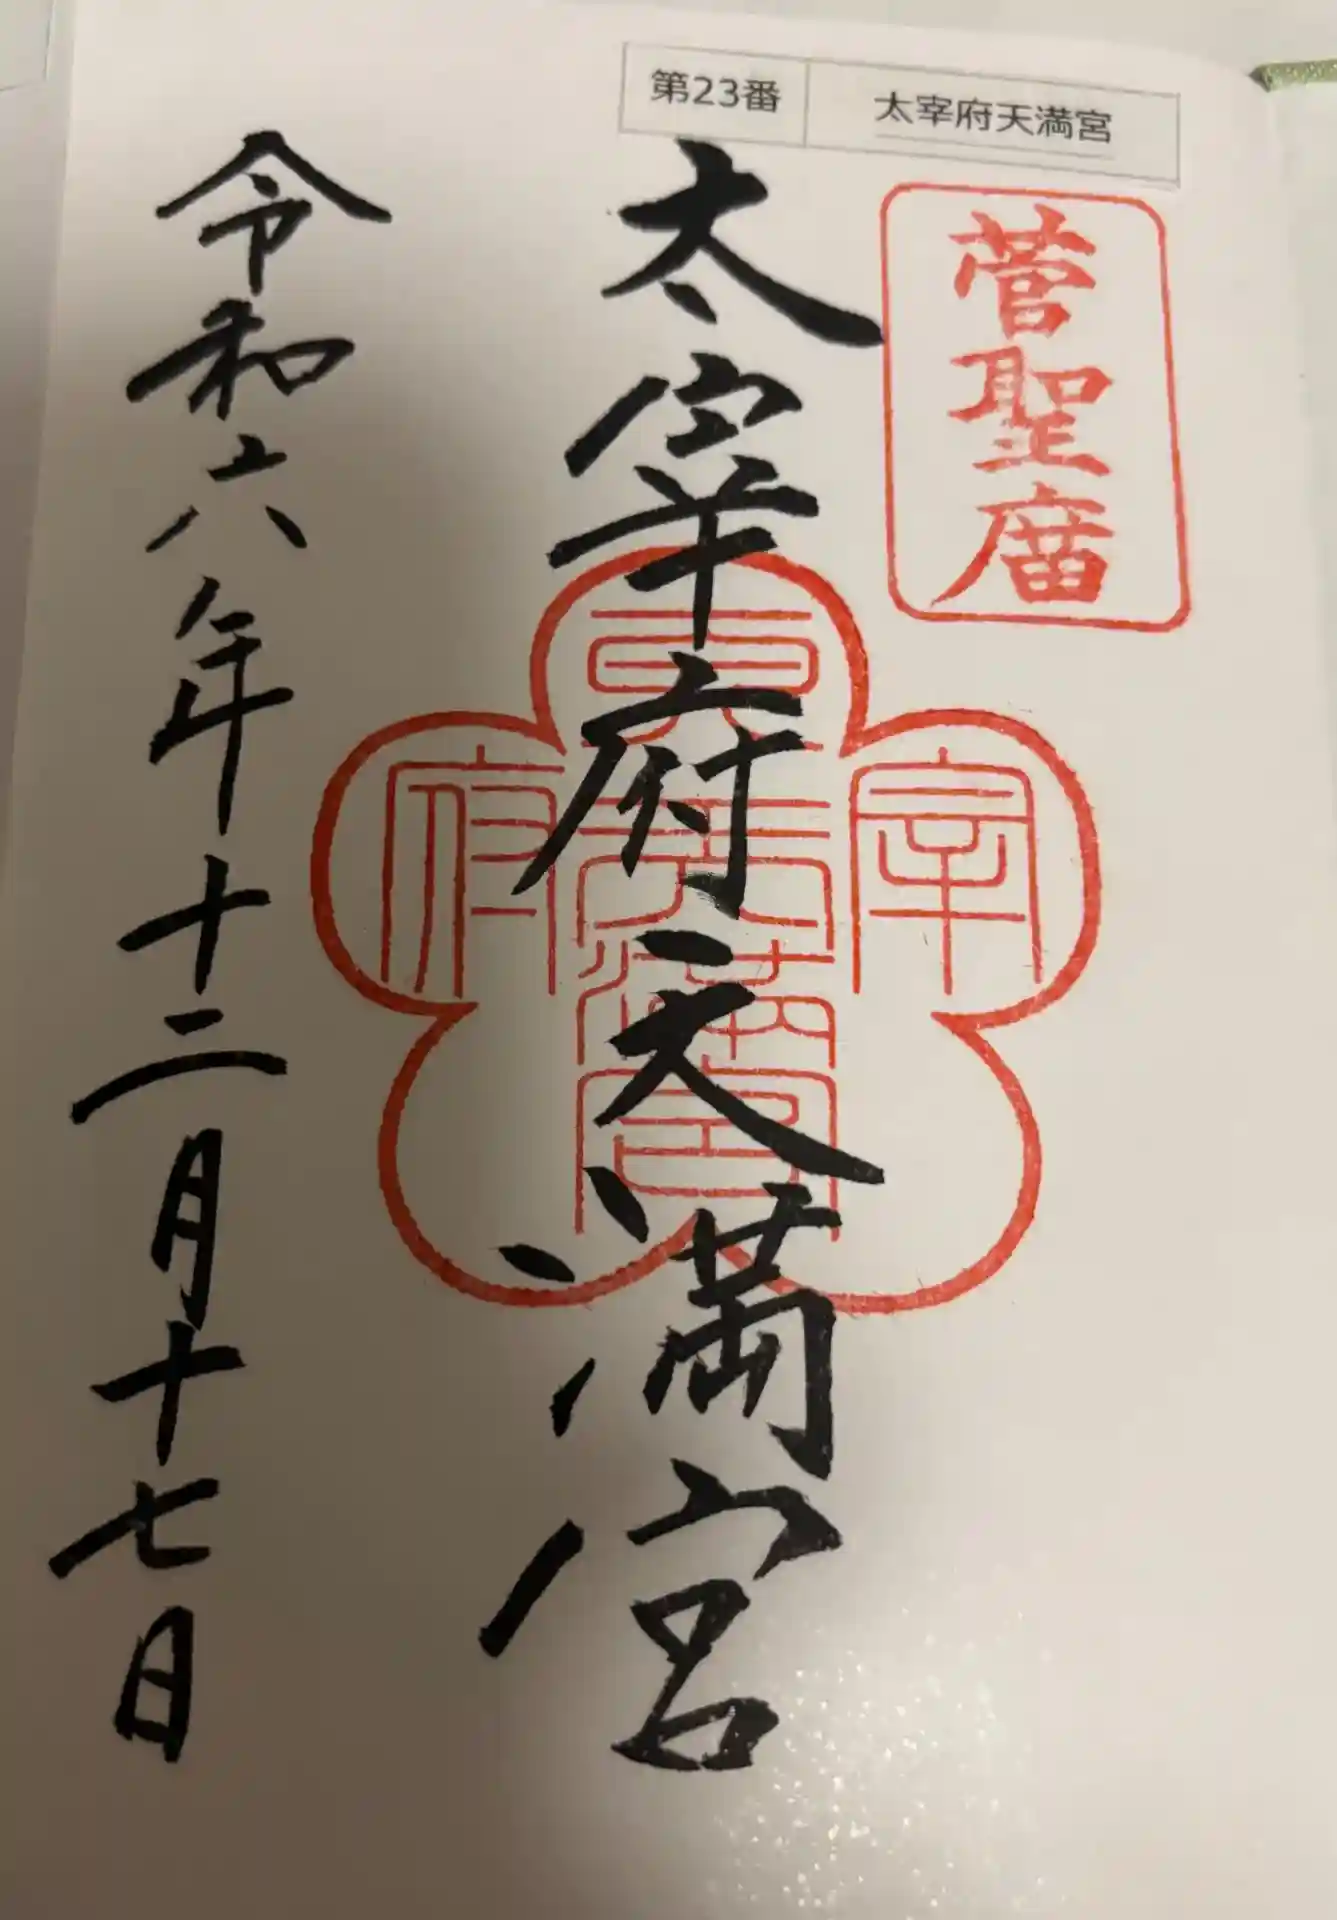 第23番 太宰府天満宮
菅聖廟
太宰府天満宮
宰
府
天満宮
令和六年十二月十七日